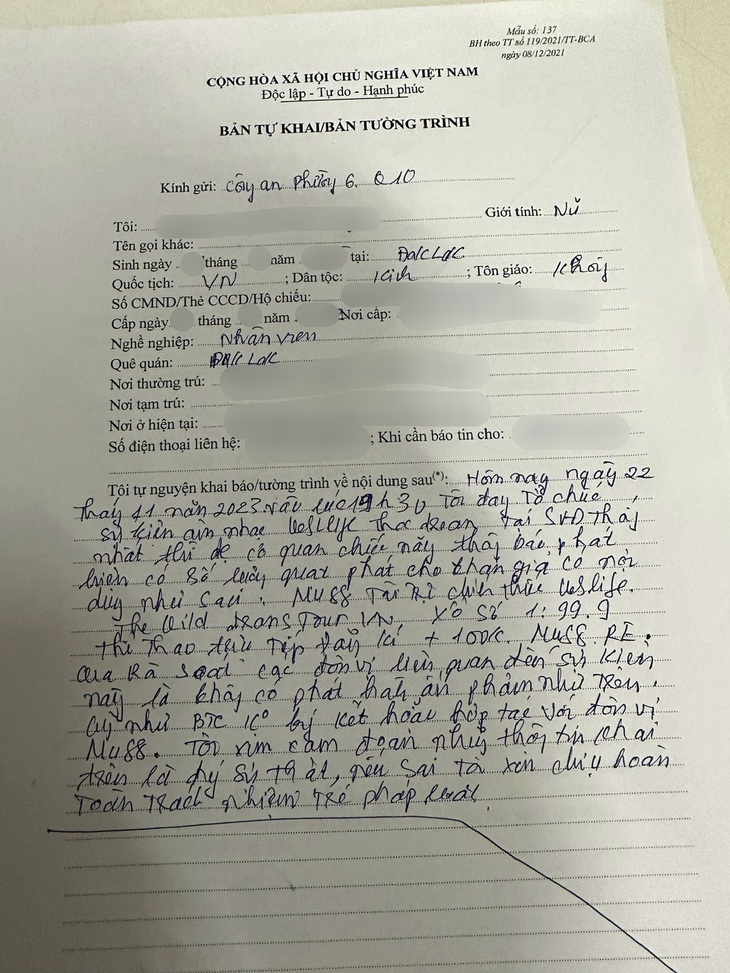 Mẫu số: 137
BH theo TT số 119/2021/TT-BCA
ngày 08/12/2021
CỘNG HÒA XÃ HỘI CHỦ NGHĨA VIỆT NAM
Độc lập - Tự do - Hạnh phúc
BẢN TỰ KHAI/BẢN TƯỜNG TRÌNH
Kính gửi: Công an Phường 6. Q10
Tôi: Giới tính: Nữ
Tên gọi khác:
Sinh ngày tháng năm tại: Đak Lak
Quốc tịch: VN ; Dân tộc: Kinh ; Tôn giáo: Không
Số CMND/Thẻ CCCD/Hộ chiếu:
Cấp ngày tháng năm Nơi cấp:
Nghề nghiệp: Nhân viên
Quê quán: Đak Lak
Nơi thường trú:
Nơi tạm trú:
Nơi ở hiện tại:
Số điện thoại liên hệ: ; Khi cần báo tin cho:
Tôi tự nguyện khai báo/tường trình về nội dung sau(*): Hôm nay ngày 22
tháng 11 năm 2023 vào lúc 19h30, Tôi đang Tổ chức
sự kiện âm nhạc tại SVĐ Thống
nhất thì được cơ quan chức năng thông báo, phát
hiện có số lượng quạt phát cho khán giả có nội
dung như sau: Mu88 Tài trợ chính thức Westlife.
The Wild Dreams Tour VN, Xổ Số 1: 99.9
Thể Thao trực Tiếp đăng kí + 100K. Mu88 RE.
Qua Rà Soát các đơn vị liên quan đến sự kiện
này là không có phát hành ấn phẩm như trên,
cũng như BTC ko ký kết hoặc hợp tác với đơn vị
Mu88. Tôi xin cam đoan những thông tin khai
trên là đúng sự thật, nếu sai tôi xin chịu hoàn
Toàn Trách nhiệm Trước pháp luật.